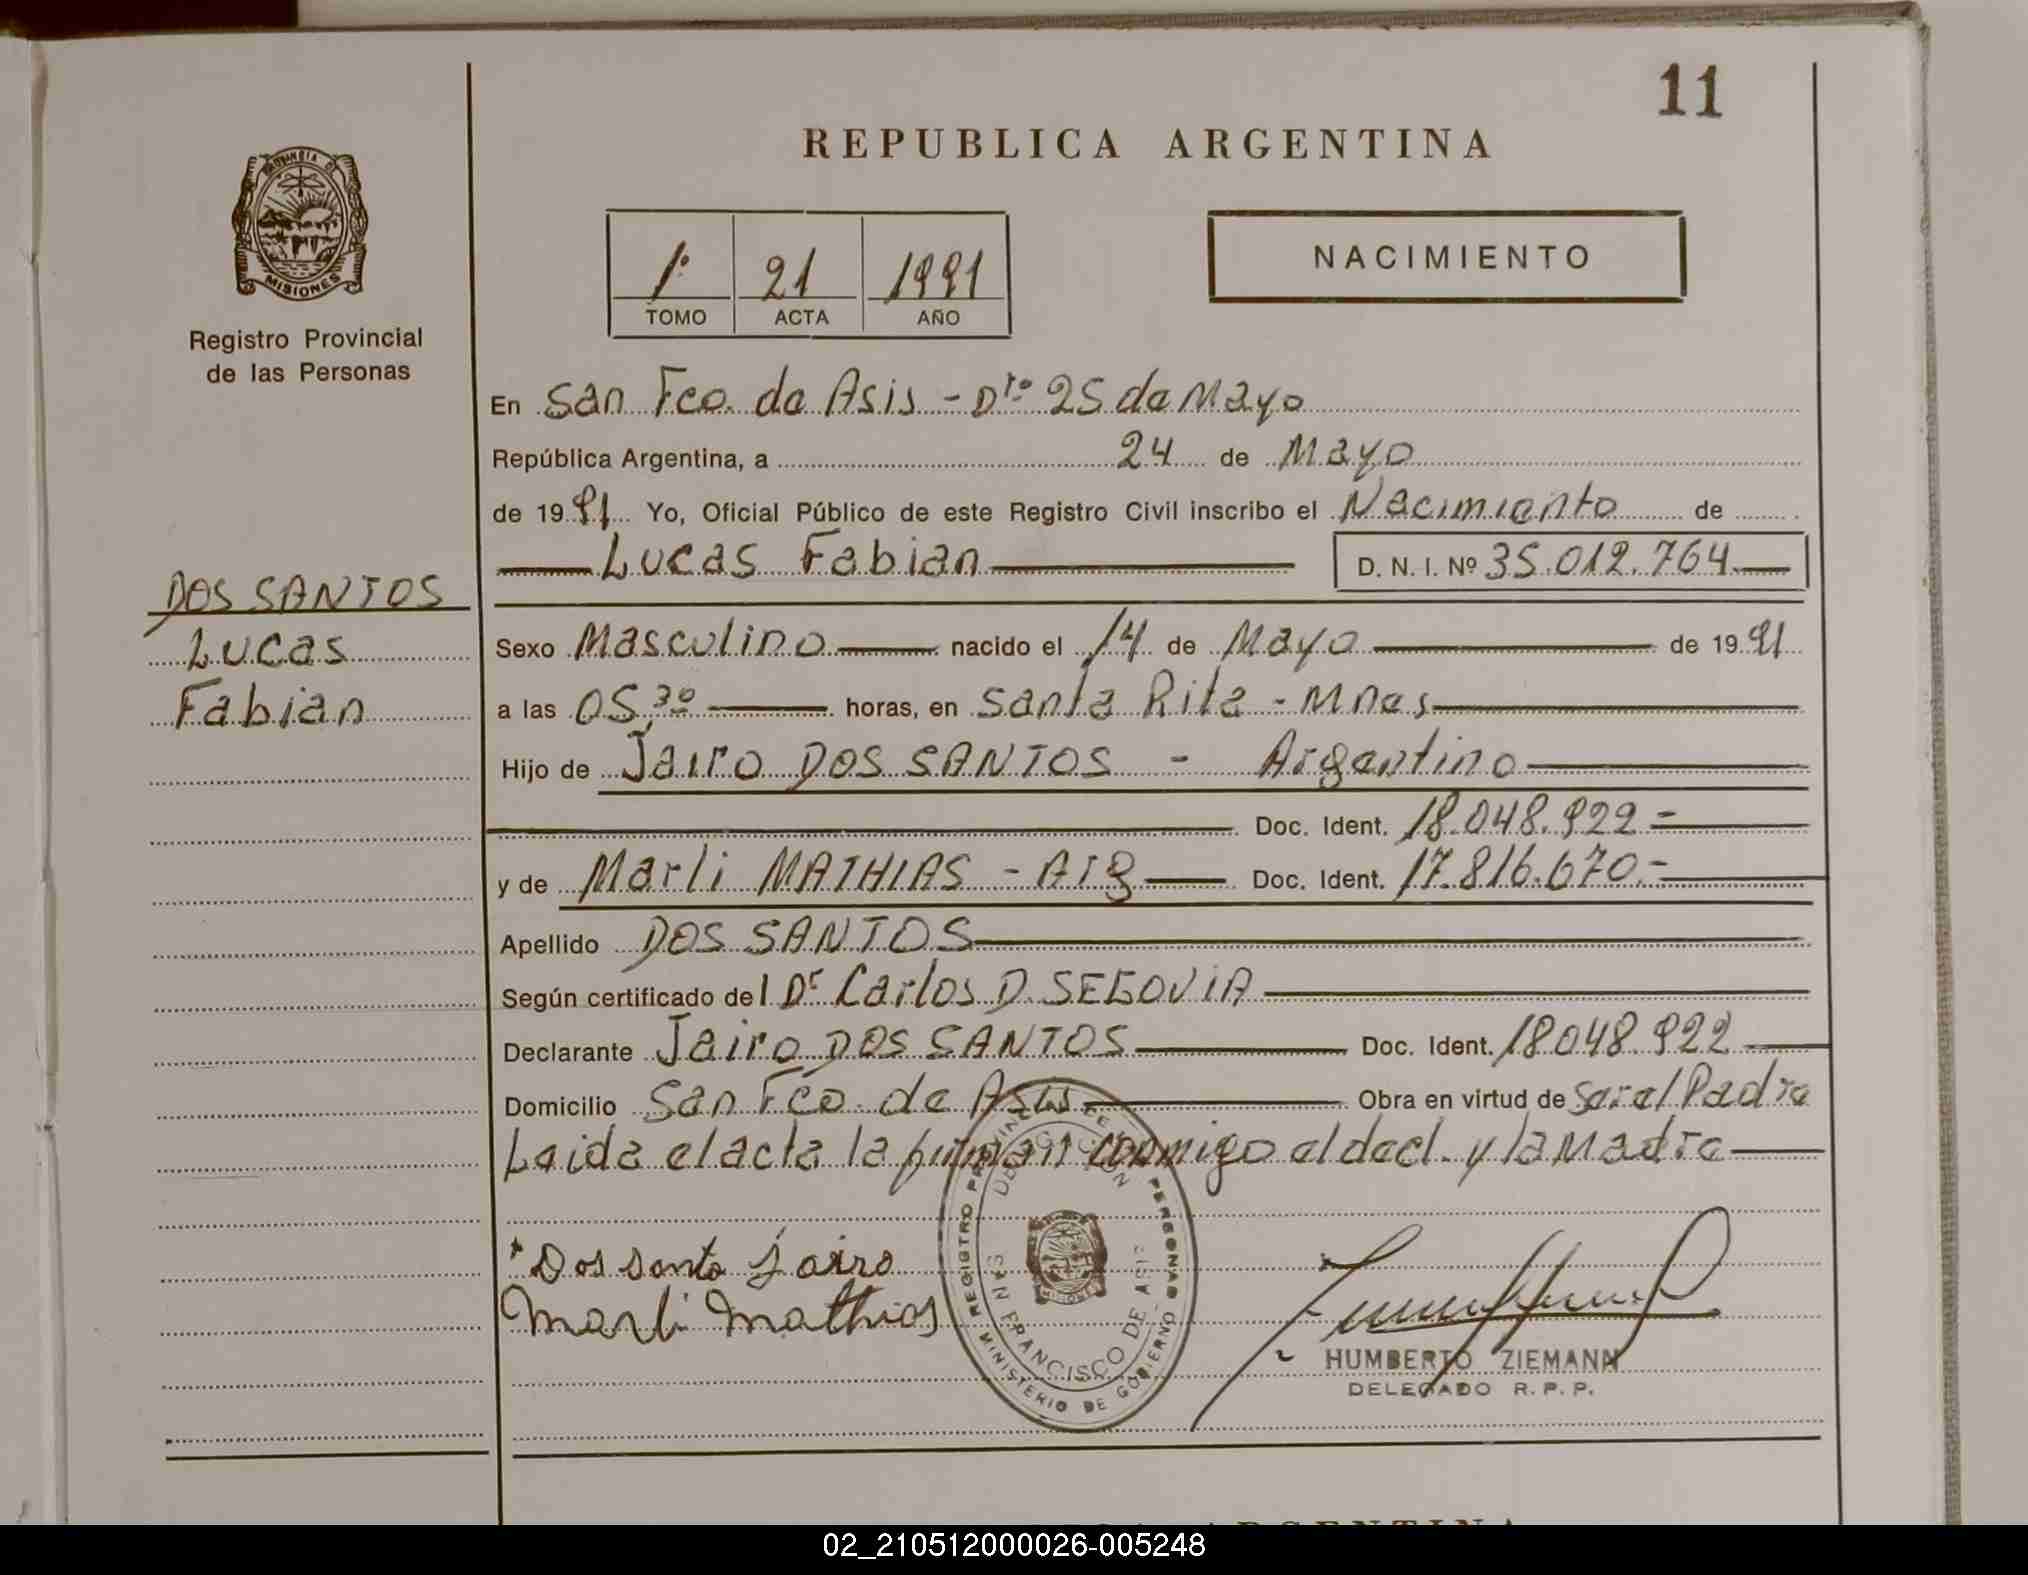 11
REPUBLICA ARGENTINA
PROVINCIA D
MISIONES
Registro Provincial
de las Personas
1º 21 1991
TOMO ACTA AÑO
NACIMIENTO
En San Fco. de Asis - Dto 25 de Mayo
República Argentina, a 24 de Mayo
de 1991 Yo, Oficial Público de este Registro Civil inscribo el Nacimiento de
Lucas Fabian D. N. I. Nº 35.012.764
DOS SANTOS
Lucas
Fabian
Sexo Masculino nacido el 14 de Mayo de 1991
a las 05,30 horas, en Santa Rita - Mnes
Hijo de Jairo DOS SANTOS - Argentino
Doc. Ident. 18.048.922 -
y de Marli MATHIAS - Arg Doc. Ident. 17.816.670.-
Apellido DOS SANTOS
Según certificado del Dr Carlos D. SEGOVIA
Declarante Jairo DOS SANTOS Doc. Ident. 18.048.922
Domicilio San Fco. de Asis Obra en virtud de ser el Padre
Leida el acta la firman conmigo el decl. y la Madre
Dos santo Jairo
Marli Mathias
REGISTRO PROVINCIAL DE LAS PERSONAS
DELEGACION
SAN FRANCISCO DE ASIS
MINISTERIO DE GOBIERNO
MISIONES
HUMBERTO ZIEMANN
DELEGADO R. P. P.
ARGENTINA
02_210512000026-005248